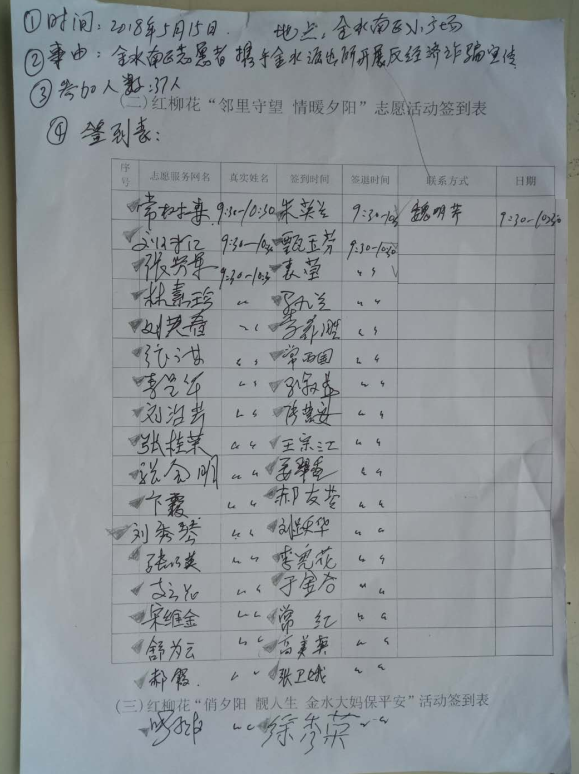 ①时间：2018年5月15日. 地点：金水南区小广场
②事由：金水南区志愿者携手金水派出所开展反经济诈骗宣传
③参加人数：37人
(二)红柳花“邻里守望 情暖夕阳”志愿活动签到表
④签到表：
序号 志愿服务网名 真实姓名 签到时间 签退时间 联系方式 日期
9:30-10:30 朱英兰 9:30-10:3 魏明芹 9:30-10:30
9:30-10:30 甄玉芬 9:30-10:30
张芳果 9:30-10:3 袁莹 〃
林素珍 〃 〃
刘英香 〃 〃
〃 常西国 〃
〃 〃
刘治芬 〃 〃
张桂荣 〃 王宗江 〃
张金明 〃 〃
卞霞 〃 郝友芬 〃
刘秀琴 〃 刘跃华 〃
〃 李宪花 〃
〃 于金香 〃
宋维金 〃 常红 〃
舒为云 〃 高美英 〃
郝霞. 〃 张卫娥 〃
(三)红柳花“俏夕阳 靓人生 金水大妈保平安”活动签到表
〃 徐秀荣 〃